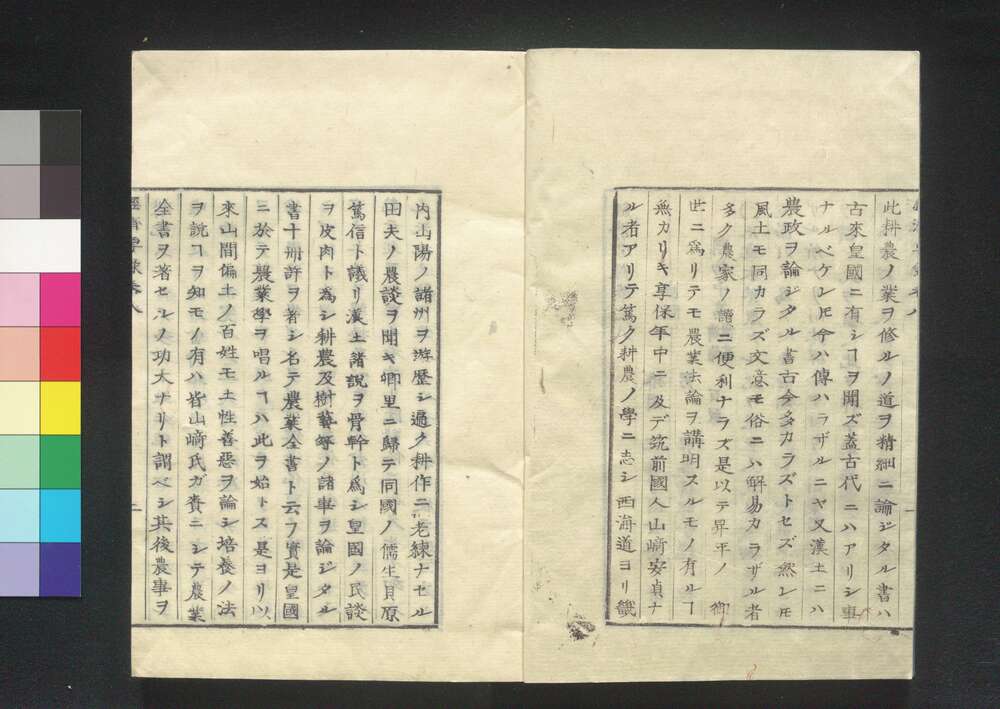 此耕農ノ業ヲ修ルノ道ヲ精細ニ論ジタル書ハ
古來皇國ニ有シヿヲ聞ズ蓋古代ニハアリシ事
ナルベケレ𪜈今ハ傳ハラザルニヤ又漢土ニハ
農政ヲ論ジタル書古今多カラズトセズ然レ𪜈
風土モ同カラズ文意モ俗ニハ解易カラザル者
多ク農家ノ讀ニ便利ナラズ是以テ昇平ノ 御
世ニ爲リテモ農業法論ヲ講明スルモノ有ルヿ
無カリキ享保年中ニ及デ筑前國人山﨑安貞ナ
ル者アリテ篤ク耕農ノ學ニ志シ西海道ヨリ畿
内山陽ノ諸州ヲ游歷シ遍ク耕作ニ老練ナセル
田夫ノ農談ヲ聞キ鄕里ニ歸テ同國ノ儒生貝原
篤信ト議リ漢土諸說ヲ骨幹ト爲シ皇國ノ民談
ヲ皮肉ト為シ耕農及樹藝等ノ諸事ヲ論ジタル
書十册許ヲ著シ名テ農業全書ト云フ實是皇國
ニ於テ農業學ヲ唱ルヿハ此ヲ始トス是ヨリ以
來山間偏土ノ百姓モ土性善惡ヲ論シ培養ノ法
ヲ說ヿヲ知モノ有ハ皆山﨑氏ガ賚ニシテ農業
全書ヲ著セルノ功大ナリト謂ベシ其後農事ヲ